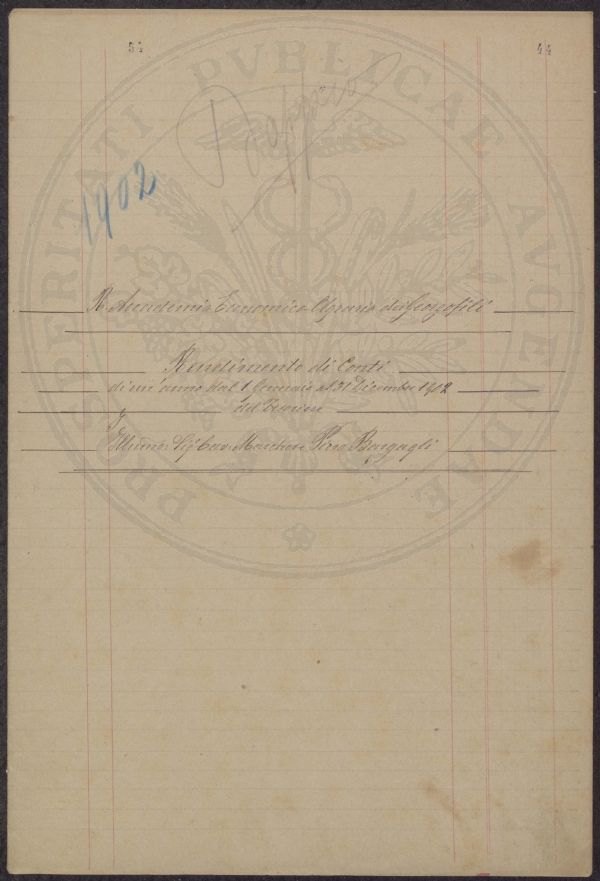 54
44
Doppione
1902
R. Accademia Economico-Agraria dei Georgofili
Rendimento di Conti
di un'anno dal 1 Gennaio al 31 Dicembre 1902
del Tesoriere
Illmo: Sig: Cav: Marchese Piero Bargagli
PROSPERITATI PVBLICAE AVGENDAE